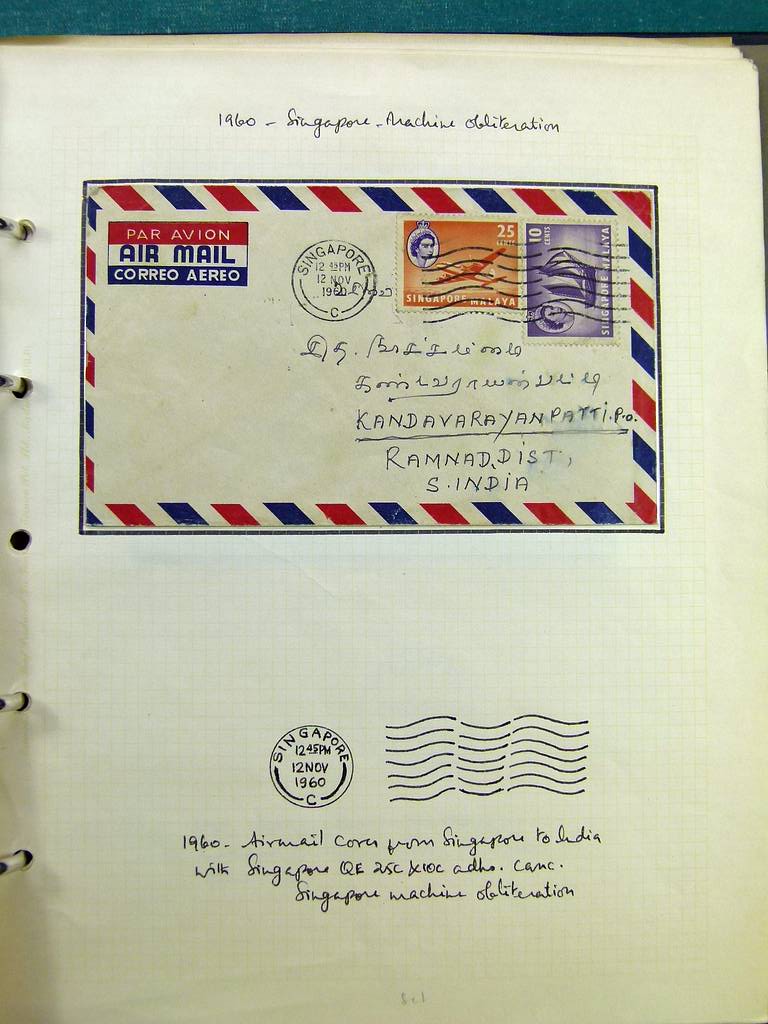 1960 - Singapore - Machine obliteration
PAR AVION
AIR MAIL
CORREO AEREO
SINGAPORE
12 45PM
12 NOV
1960
C
25
CENTS
SINGAPORE MALAYA
10
CENTS
SINGAPORE MALAYA
KANDAVARAYANPATTI.P.O.
RAMNAD.DIST,
S.INDIA
SINGAPORE
12 45PM
12 NOV
1960
C
1960 - Airmail cover from Singapore to India
with Singapore QE 25c & 10c adhs. canc.
Singapore machine obliteration